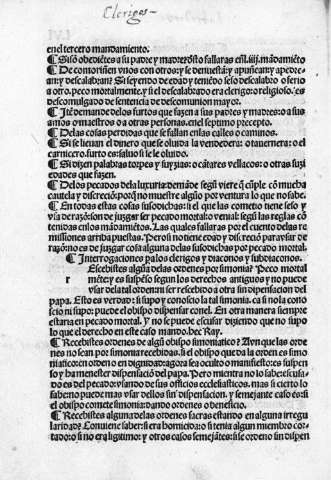 Clerigos
en el tercero mandamiento.
¶ Si son obediẽtes a su padre y madre: desto fallaras enel .iiij. mãdamiẽto
¶ De como riñen vnos con otros: y se denuestã: y apuñean: y apedre
an: y descalabrãnse Si seyendo de edad y teniẽdo seso descalabro o ferio
a otro. peco mortalmente, y si el descalabrado era clerigo: o religioso. es
descomulgado de sentencia de descomunion mayor.
¶ Itẽ demande delos furtos que fazen a sus padres y madres: o a sus
amos o maestros o a otras personas. en el septimo precepto.
¶ Delas cosas perdidas que se fallan enlas calles o caminos.
¶ Si se lieuan el dinero que se oluida la vendedera: o tauernera: o el
carnicero. furto es: saluo si le le oluido.
¶ Si dizen palabras torpes y suzias: o cãtares vellacos: o otras suzi
edades que fazen.
¶ Delos pecados dela luxuria: demãde segũ viere q̃ cũple cõ mucha
cautela y discreciõ porq̃ no muestre algũo por ventura lo que no sabe.
¶ En todas estas cosas susodichas: si el que las cometio tiene seso y
vsa de razõ: son de juzgar ser pecado mortal: o venial: segũ las reglas cõ
tenidas enlos mãdamiẽtos. Las quales fallaras por el cuento delas re
missiones arriba puestas. Pero si no tiene edad y discreciõ para vsar de
razõ: no es de juzgar cosa alguna delas susodichas por pecado mortal.
¶ Interrogaciones pa los clerigos y diaconos y subdiaconos.
r Escebistes algũa delas ordenes por simonia? Peco mortal
mẽte: y es suspẽso segun los derechos antiguos: y no puede
vsar dela tal orden: ni ser recebido a otra sin dispensacion del
papa. Esto es verdad: si supo y conoscio la tal simonia. ca si no la cono
scio ni supo: puede el obispo dispensar conel. En otra manera siempre
estaria en pecado mortal. Y no se puede escusar diziendo que no supo
lo que el derecho en este caso mando. hec Ray.
¶ Recebistes ordenes de algũ obispo simoniatico? Aun que las orden
nes no sean por simonia recebidas. si el obispo que da la ordẽ es simo
niatico: en orden o en dignidad: agora sea oculto o manifiesto: es suspen
so y ha menester dispensaciõ del papa. Pero mientra no lo sabe: escusa
do es del pecado: vsando de sus officios ecclesiasticos. mas si cierto lo
sabe no puede mas vsar dellos sin dispensacion. y semejante caso es: si
el obispo comete simonia: dando ordenes o beneficio.
¶ Recebistes alguna delas ordenes sacras estando en alguna irregu
laridad? Conuiene saber: si era homicida: o si tenia algun miembro cor
tado: o si no era legitimo: y otros casos semejãtes: si se ordeno sin dispen